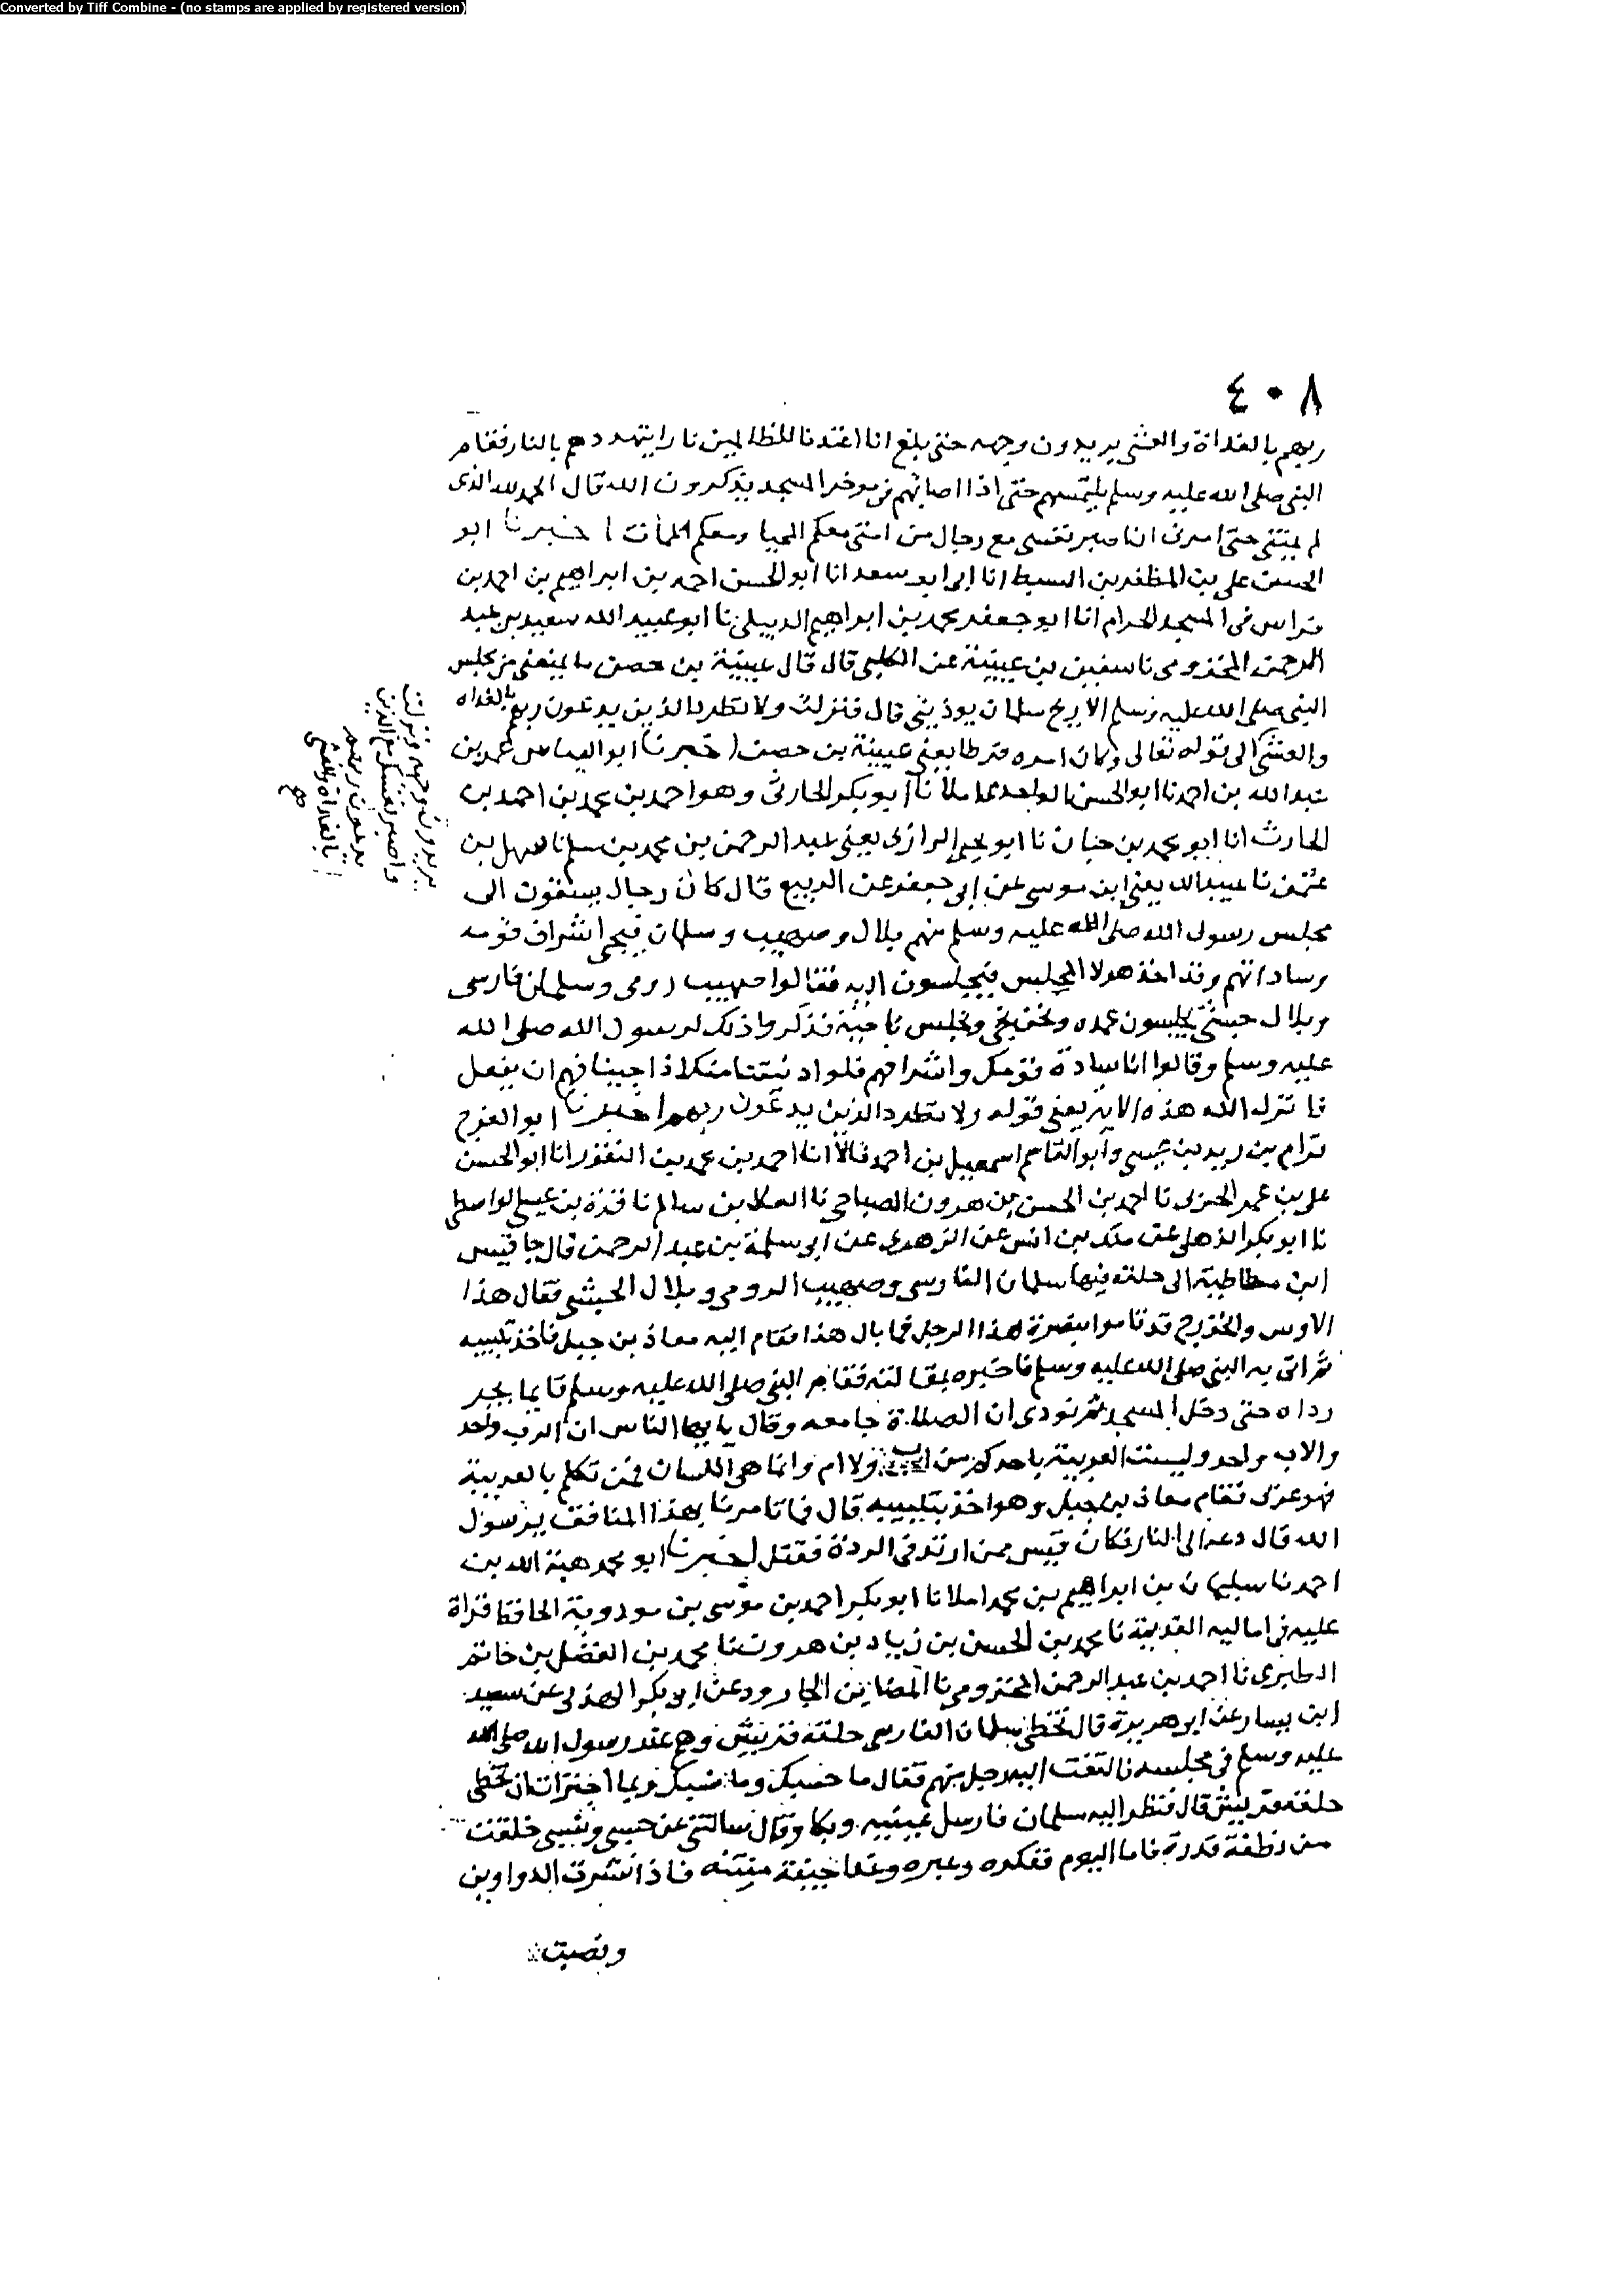 Converted by Tiff Combine - (no stamps are applied by registered version)
٤٠٨
ربهم بالغداة والعشى يريدون وجهه حتى بلغ انا اعتدنا للظالمين نارا يتهددهم بالنار فقام
النبى صلى الله عليه وسلم يلتمسهم حتى اذا اصابهم فى موخر المسجد يذكرون الله قال الحمد لله الذى
لم يمتنى حتى امرنى ان اصبر نفسى مع رجال من امتى معكم المحيا ومعكم الممات اخبرنا ابو
الحسن على بن المظفر بن السبط انا ابى ابو سعد انا ابو الحسن احمد بن ابراهيم بن احمد بن
فراس فى المسجد الحرام انا ابو جعفر محمد بن ابراهيم الديبلى نا ابو عبيد الله سعيد بن عبد
الرحمن المخزومى نا سفين بن عيينة عن الكلبى قال قال عيينة بن حصن ما يمنعنى من مجلس
النبى صلى الله عليه وسلم الا ريح سلمان يوذينى قال فنزلت ولا تطرد الذين يدعون ربهم بالغداه
والعشى الى قوله تعالى وكان امره فرطا يعنى عيينة بن حصن اخبرنا ابو العباس عمر بن
عبد الله بن احمد نا ابو الحسن الواحدى املا نا ابو بكر الحارثى وهو احمد بن محمد بن احمد بن
الحارث انا ابو محمد بن حيان نا ابو يحيى الرازى يعنى عبد الرحمن بن محمد بن سلم نا سهل بن
عثمن نا عبيد الله يعنى ابن موسى عن ابى جعفر عن الربيع قال كان رجال يسبقون الى
مجلس رسول الله صلى الله عليه وسلم منهم بلال وصهيب وسلمان فيجى اشراف قومه
وساداتهم وقد اخذ هولا المجلس فيجلسون اليه فقالوا صهيب رومى وسلمان فارسى
وبلال حبشى يجلسون عنده ونحن نجى ونجلس ناحية فذكروا ذلك لرسول الله صلى الله
عليه وسلم وقالوا انا سادة قومك واشرافهم فلو ادنيتنا منك اذا جينا فهم ان يفعل
فانزل الله هذه الاية يعنى قوله ولا تطرد الذين يدعون ربهم اخبرنا ابو الفرج
قوام بن زيد بن عيسى وابو القاسم اسمعيل بن احمد قالا انا احمد بن محمد بن النقور انا ابو الحسن
على بن عمر الحربى نا احمد بن الحسن بن هرون الصباحى نا العلا بن سالم نا قرة بن عيسى الواسطى
نا ابو بكر الذهلى عن ملك بن انس عن الزهرى عن ابى سلمة بن عبد الرحمن قال جا قيس
ابن مطاطية الى حلقة فيها سلمان الفارسى وصهيب الرومى وبلال الحبشى فقال هذا
الاوس والخزرج قد قاموا بنصرة هذا الرجل فما بال هذا فقام اليه معاذ بن جبل فاخذ بتلبيبه
ثم اتى به النبى صلى الله عليه وسلم فاخبره بمقالته فقام النبى صلى الله عليه وسلم قايما يجر
رداه حتى دخل المسجد ثم نودى ان الصلاة جامعه وقال يا ايها الناس ان الرب واحد
والاب واحد وليست العربية باحدكم من اب ولا ام وانما هى اللسان فمن تكلم بالعربية
فهو عربى فقام معاذ بن جبل وهو اخذ بتلبيبه قال فما تامرنا بهذا المنافق يرسول
الله قال دعه الى النار فكان قيس ممن ارتد فى الردة فقتل اخبرنا ابو محمد هبة الله بن
احمد نا سليمان بن ابراهيم بن محمد املا نا ابو بكر احمد بن موسى بن مردوية الحافظ قراة
عليه فى اماليه القديمة نا محمد بن الحسن بن زياد بن هرون نا محمد بن الفضل بن حاتم
الطبرى نا احمد بن عبد الرحمن المخزومى نا المضا بن الجارود عن ابى بكر الهذلى عن سعيد
ابن يسار عن ابى هريرة قال تخطى سلمان الفارسى حلقة قريش وهم عند رسول الله صلى الله
عليه وسلم فى مجلسه فالتفت اليه رجل منهم فقال ما حسبك وما نسبك وبما اجترات ان تخطى
حلقة قريش قال فنظر اليه سلمان فارسل عينيه وبكا وقال سالتنى عن حسبى ونسبى خلقت
من نطفة قذرة فاما اليوم ففكره وعبره وغدا جيفة منتنه فاذا نشرت الدواوين
ونصبت
يريدون وجهه ونزلت
واصبر نفسك مع الذين
يدعون ربهم
بالغداة والعشى
صح